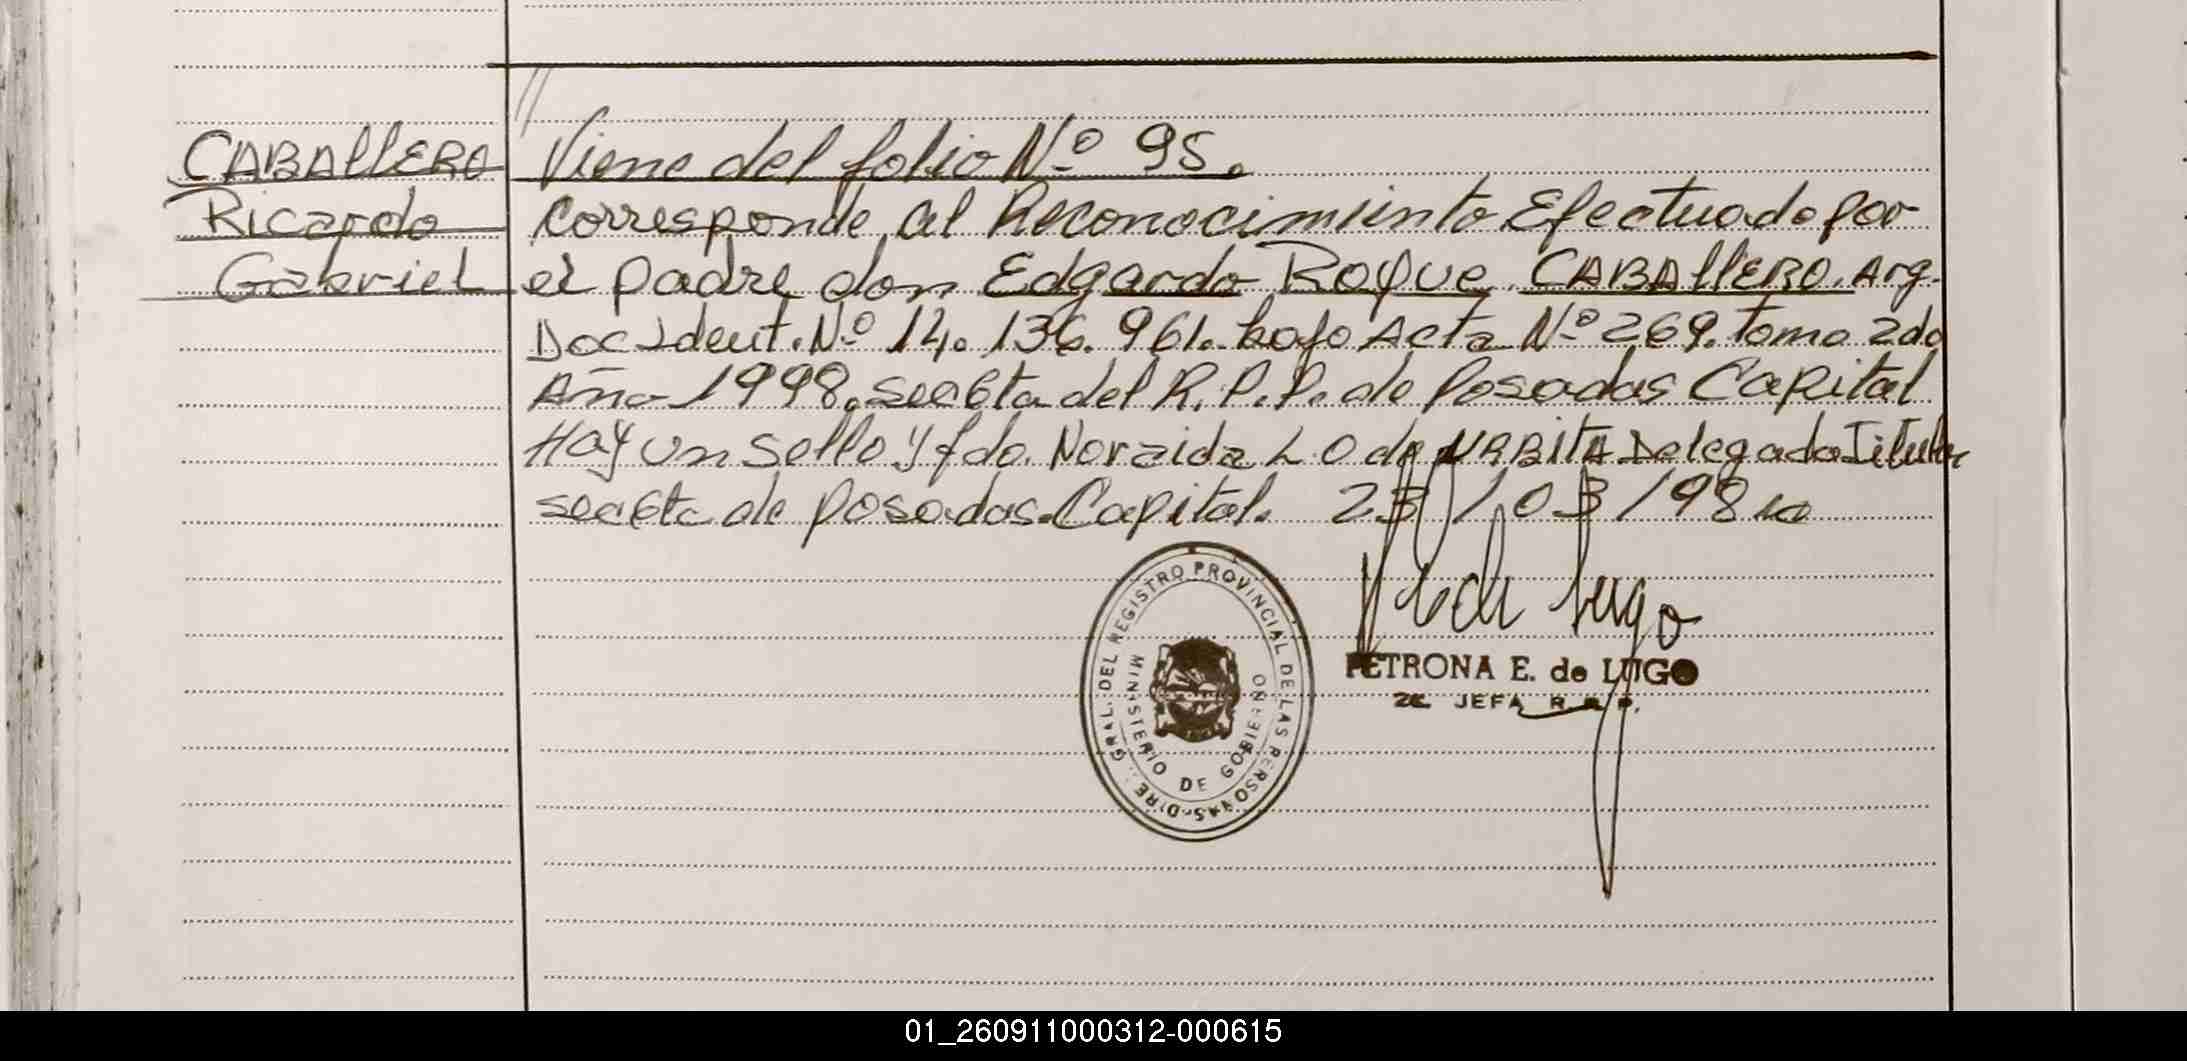 CABALLERO
Ricardo
Gabriel
Viene del folio Nº 95.
Corresponde al Reconocimiento Efectuado por
el padre don Edgardo Roque CABALLERO. Arg.
Doc Ident. Nº 14.136.961. bajo Acta Nº 269. tomo 2do
Año 1998. secc 6ta del R.P.P. de Posadas Capital
Hay un sello y fdo. Noraida L O de URBITA Delegada Titular
secc 6ta de posadas. Capital. 23/03/98
DIRE. GRAL. DEL REGISTRO PROVINCIAL DE LAS PERSONAS
MINISTERIO DE GOBIERNO
de Lugo
PETRONA E. de LUGO
JEFA R. P.
01_260911000312-000615